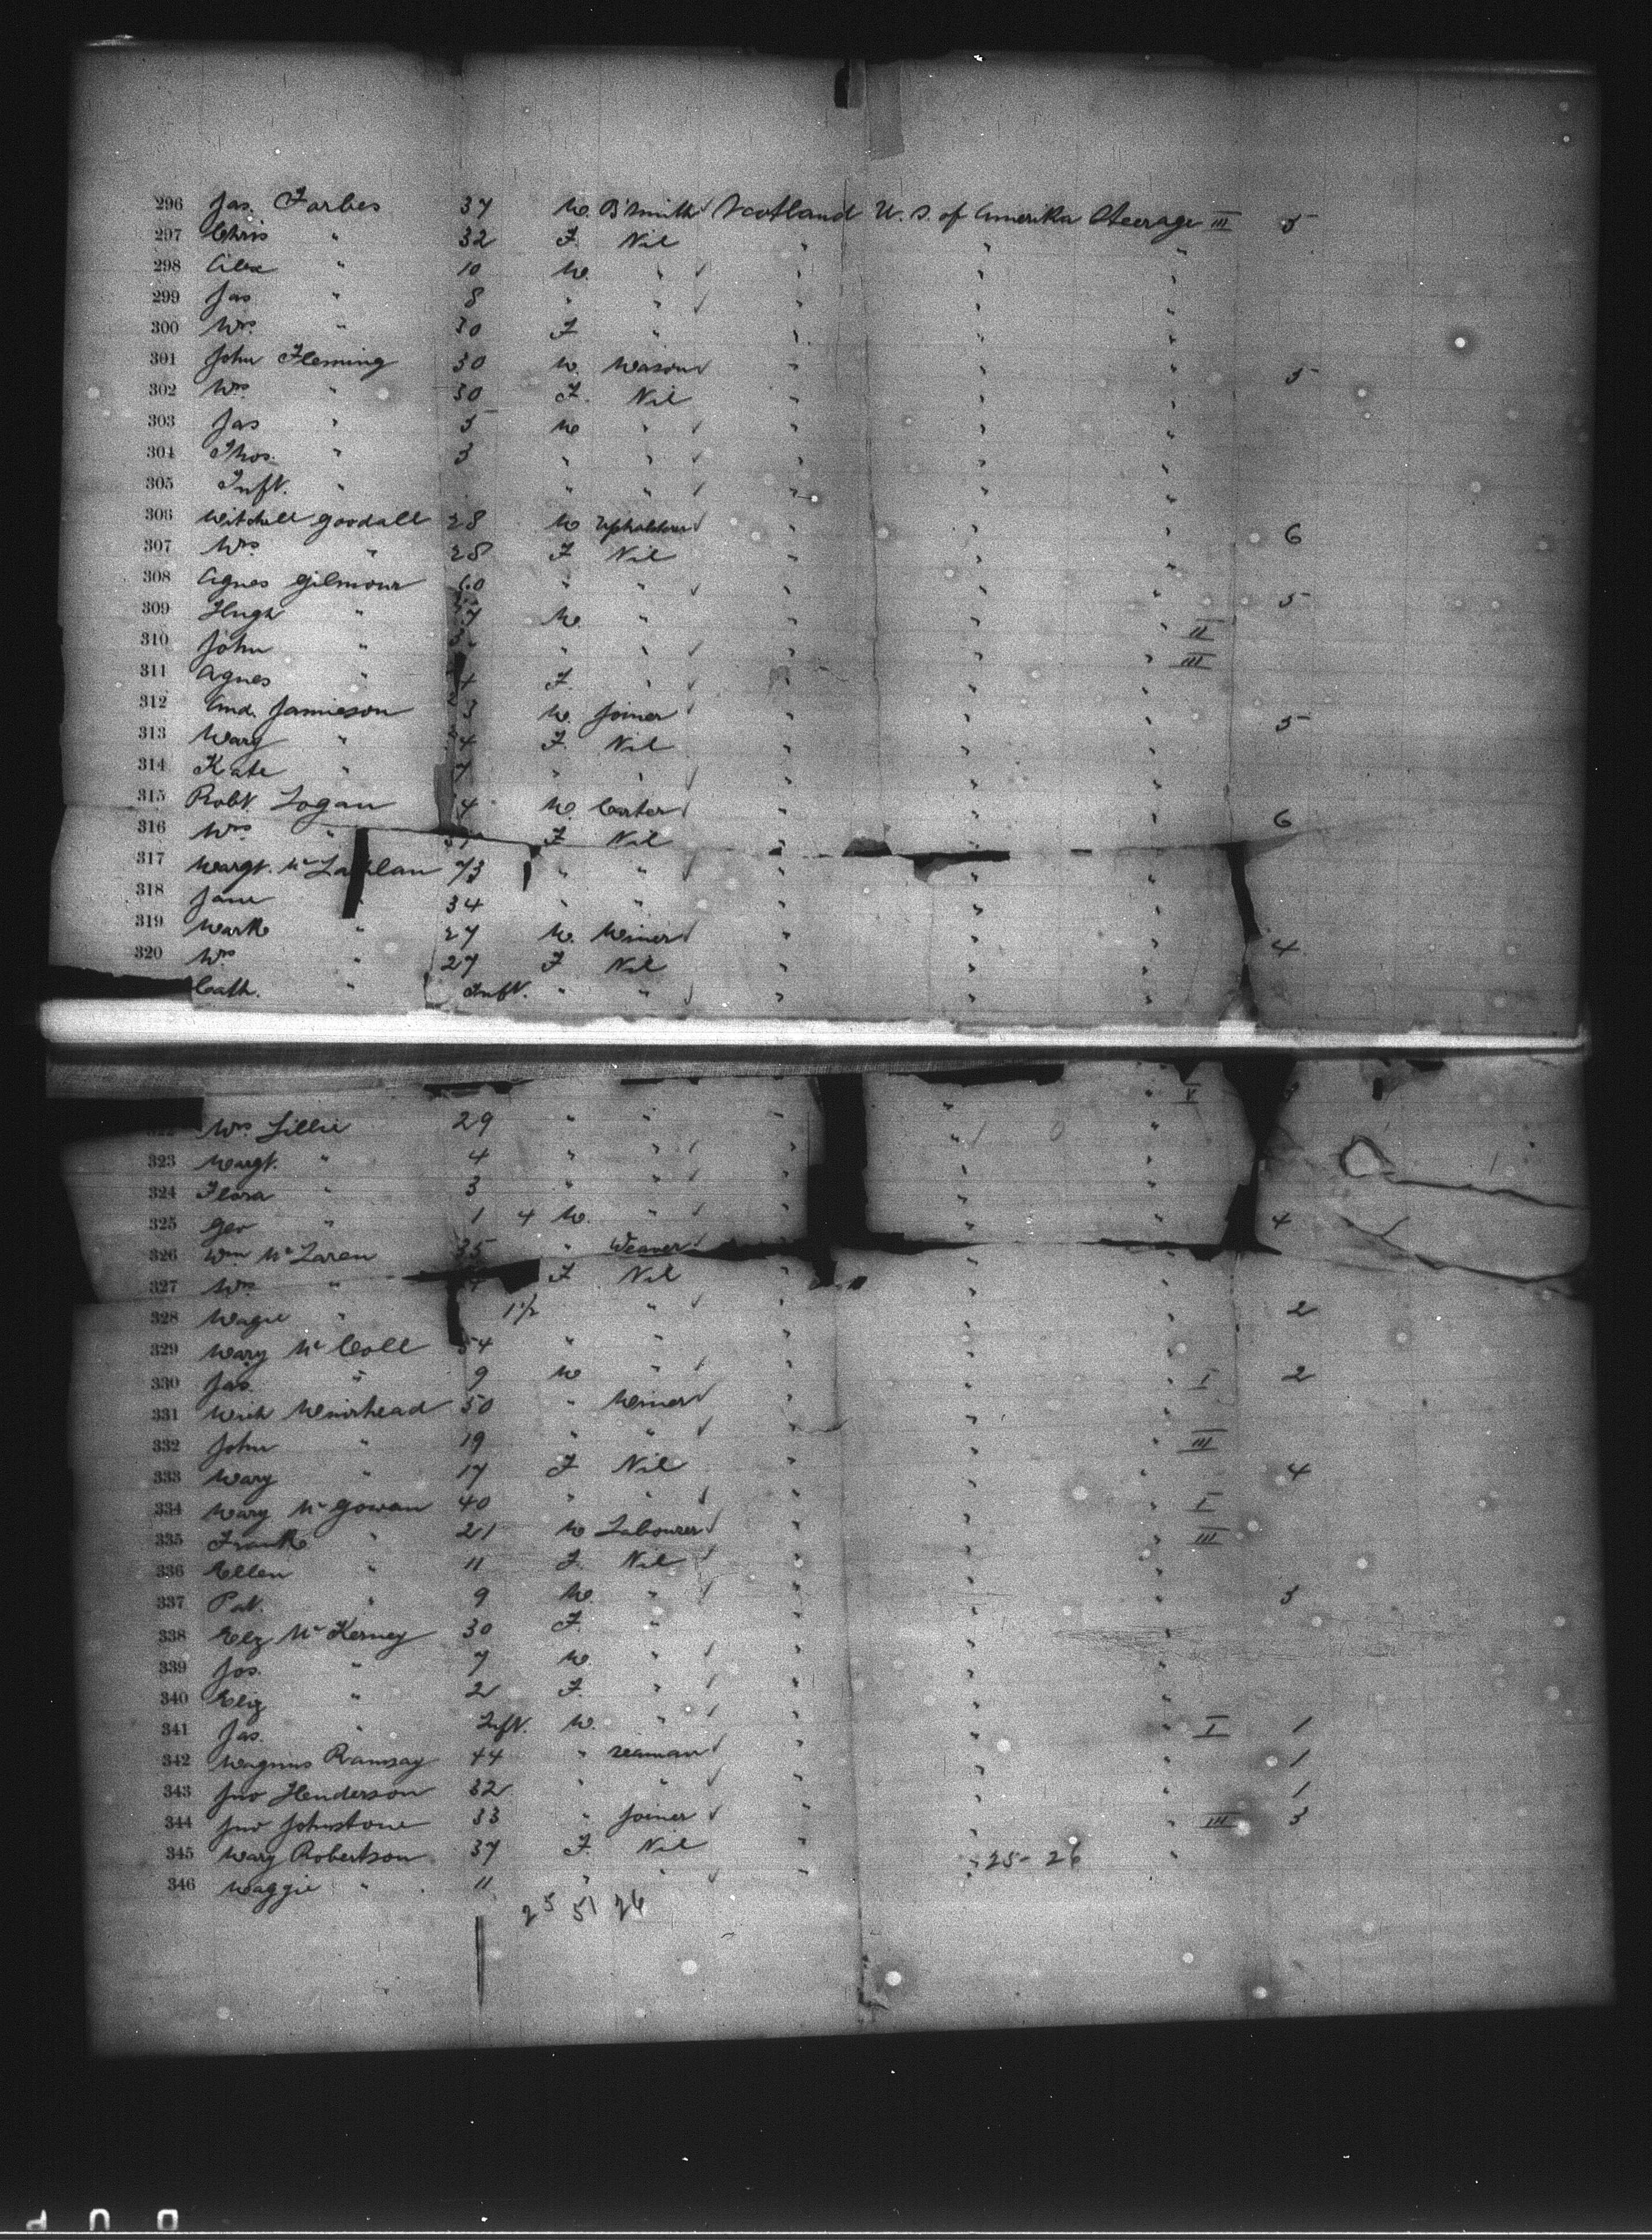 296 Jas. Forbes 37 M. B'Smith Scotland U. S. of Amerika Steerage III 5
297 Chris " 32 F. Nil " " "
298 Alex " 10 M. " " " "
299 Jas " 8 " " " " "
300 Mrs " 30 F " " " "
301 John Fleming 30 M. Mason " " " 5
302 Mrs " 30 F. Nil " " "
303 Jas " 5 M " " " "
304 Thos. " 3 " " " " "
305 Inft. " " " " " "
306 Mitchell Goodall 28 M Upholsterer " " " 6
307 Mrs " 28 F Nil " " "
308 Agnes Gilmour 60 " " " " " 5
309 Hugh " M. " " " " II
310 John " " " " " " III
311 Agnes " 4 F. " " " "
312 And. Jamieson 3 M. Joiner " " " 5
313 Mary " 4 F. Nil " " "
314 Kate " 7 " " " " "
315 Robt. Logan 4 M. Carter " " " 6
316 Mrs " F Nil " " "
317 Margt. Mc Lachlan 73 " " " " "
318 Jane " 34 " " " " "
319 Mark " 27 M. Miner " " " 4
320 Mrs " 27 F Nil " " "
Cath. " Inft. " " " " "
Mrs Lillie 29 " " " " "
323 Margt. " 4 " " " " "
324 Flora " 3 " " " " "
325 Geo " 1 4 M. " " " 4
326 Wm Mc Laren 35 " Weaver " "
327 Mrs " F Nil " " "
328 Magie " 1 1/2 " " " " 2
329 Mary Mc Coll 54 " " " " "
330 Jas. " 9 M " " " " I 2
331 Mich Muirhead 50 " Miner " " "
332 John " 19 " " " " " III
333 Mary " 17 F Nil " " " 4
334 Mary Mc Gowan 40 " " " " " I
335 Frank " 21 M Labourer " " " III
336 Ellen " 11 F. Nil " " "
337 Pat. " 9 M. " " " " 5
338 Elz Mc Kerney 30 F. " " " "
339 Jos. " 7 M. " " " "
340 Eliz " 2 F. " " " "
341 Jas. " Inft. M. " " " " I 1
342 Magnus Ramsay 44 " Seaman " " " 1
343 Jno Henderson 32 " " " " " 1
344 Jno Johnstone 33 " Joiner " " " III 3
345 Mary Robertson 37 F. Nil " " "
346 Maggie " 11 " " " " 25-26
25 51 26